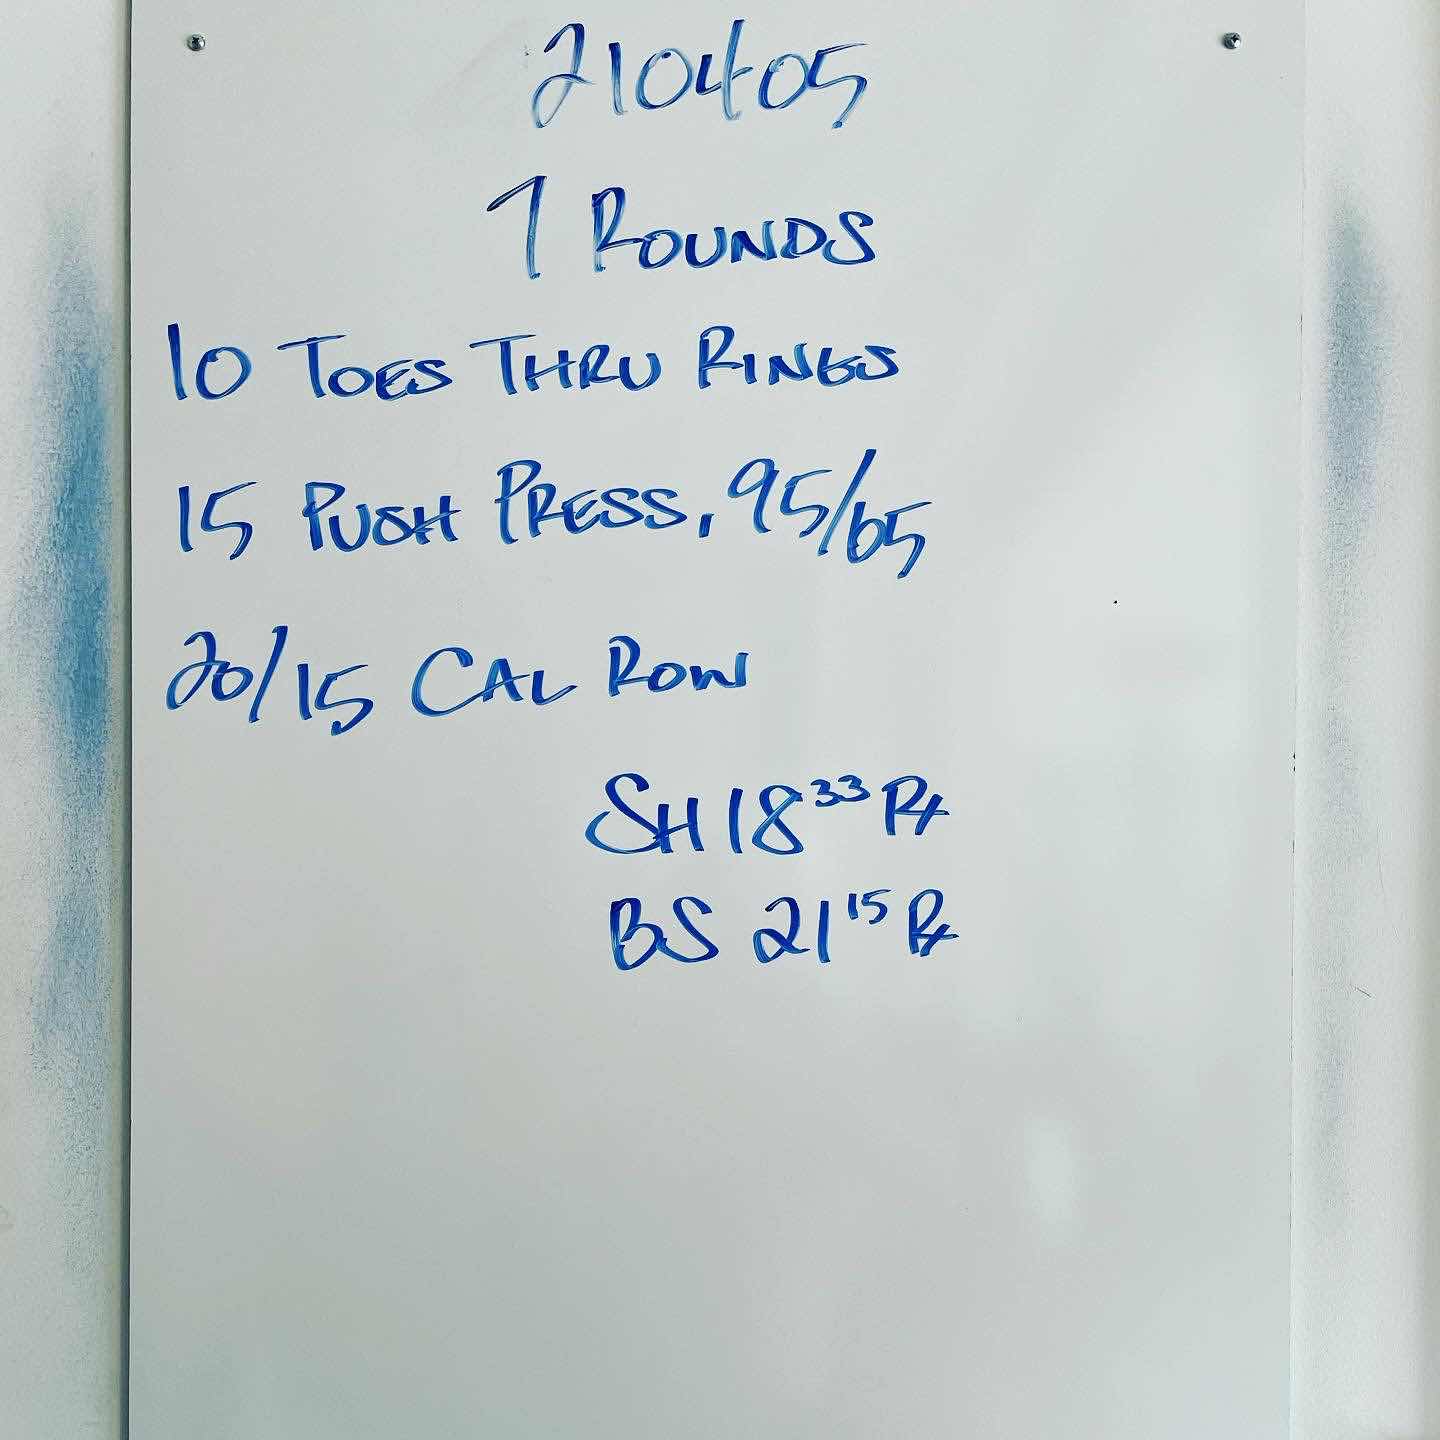 210405
7 ROUNDS
10 TOES THRU RINGS
15 PUSH PRESS, 95/65
20/15 CAL ROW
SH 18 33 Rx
BS 21 15 Rx